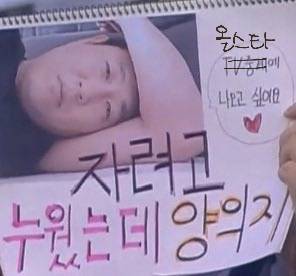 올스타
TV중계에
나오고 싶어요
자려고
누웠는데 양의지